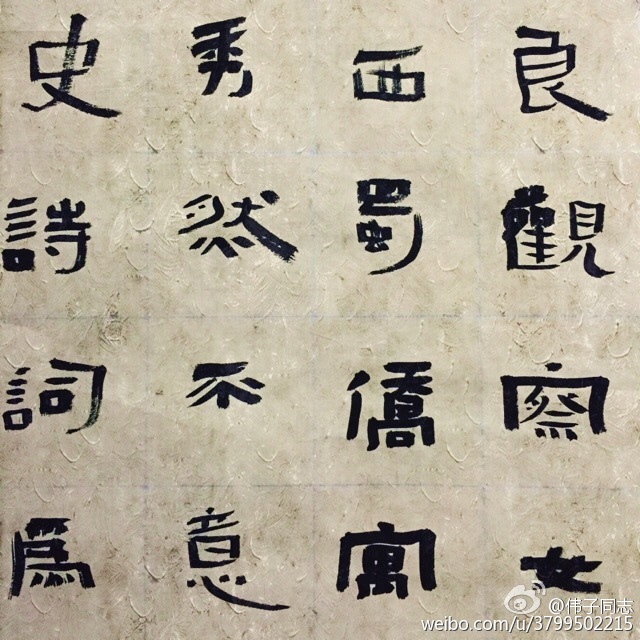 良觀察女
西蜀僑寓
秀然不意
史詩詞為
@伟子同志
weibo.com/u/3799502215